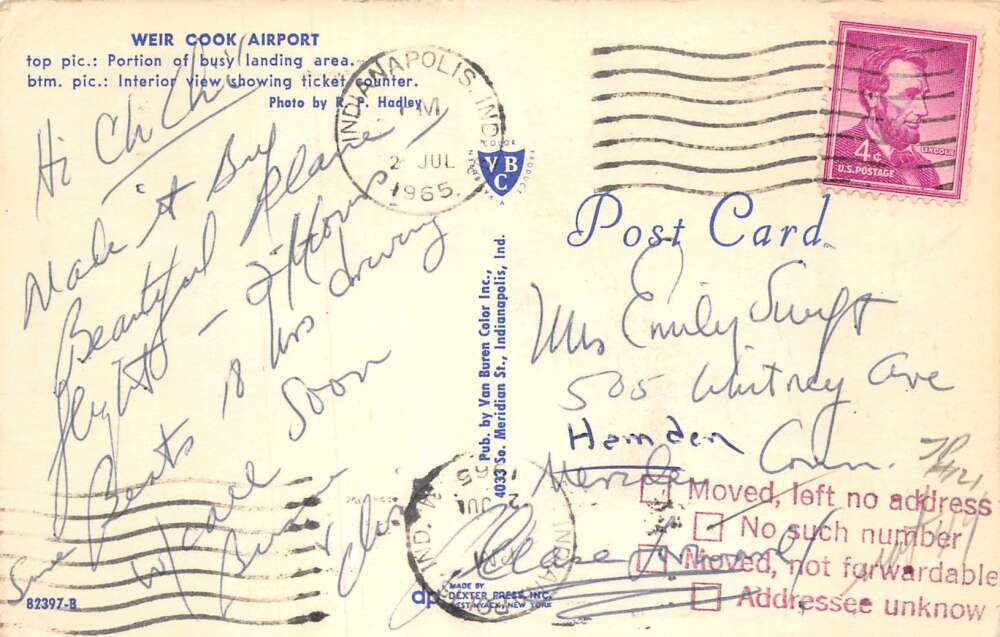 WEIR COOK AIRPORT
top pic.: Portion of busy landing area.
btm. pic.: Interior view showing ticket counter.
Photo by R. P. Hadley
Hi Chi Chi
Made it By
Beautiful Plane
flight - 2 Hours
Beats 18 hrs driving
Sure
Soon
82397-B
INDIANAPOLIS, IND.
PM
2 JUL
1965
COLOR
VBC
PRODUCT
Pub. by Van Buren Color Inc.,
4033 So. Meridian St., Indianapolis, Ind.
4¢
LINCOLN
U.S. POSTAGE
Post Card
Mrs Emily Swift
505 Whitney Ave
Hamden
Meriden Conn.
Please Forward
Moved, left no address
No such number
Moved, not forwardable
Addressee unknow
2 JUL
1965
MADE BY
dp DEXTER PRESS, INC.
WEST NYACK, NEW YORK